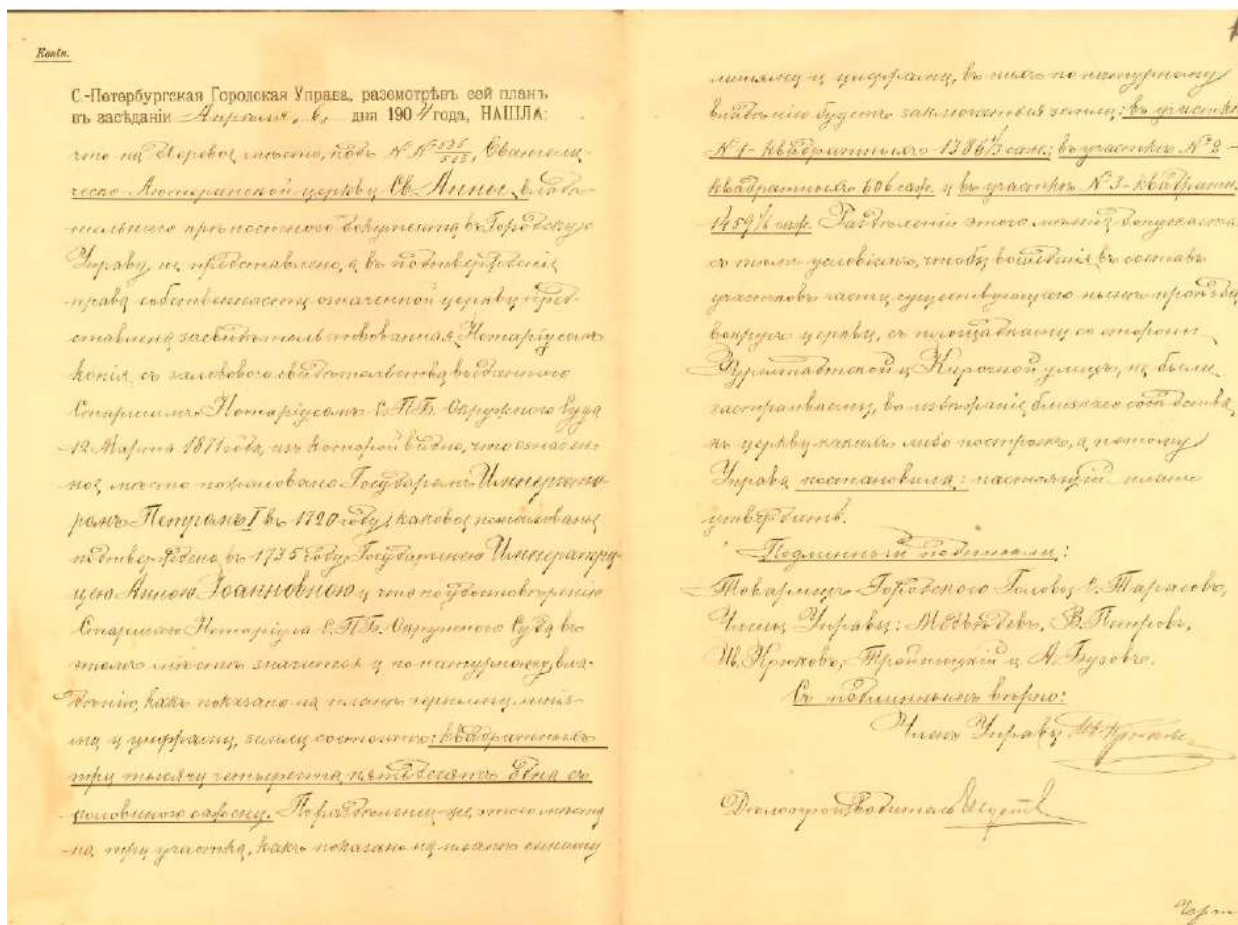 Копія.
С.-Петербургская Городская Управа, разсмотрѣвъ сей планъ
въ засѣданіи Апрѣля, 6, дня 1904 года, НАШЛА:
что на дворовое мѣсто, подъ № №, Евангели-
ческо-Лютеранской церкви Св. Анны, владѣ-
тельнаго крѣпостного документа въ Городскую
Управу не представлено, а въ подтвержденіе
права собственности означенной церкви пред-
ставлена засвидѣтельствованная Нотаріусомъ
копія съ залоговаго свидѣтельства выданнаго
Старшимъ Нотаріусомъ С.П.Б. Окружнаго Суда
12 Марта 1871 года, изъ которой видно, что означен-
ное мѣсто пожаловано Государемъ Императо-
ромъ Петромъ I въ 1720 году, каковое пожалованье
подтверждено въ 1735 году Государынею Императри-
цею Анною Іоанновною и что по удостовѣренію
Старшаго Нотаріуса С.П.Б. Окружнаго Суда въ
этомъ мѣстѣ значится и по натурному вла-
дѣнію, какъ показано на планѣ черными линія-
ми и цифрами, земли состоитъ: квадратныхъ
три тысячи четыреста пятьдесятъ одна съ
половиною сажень. По раздѣленіи же этого мѣста
на три участка, какъ показано на планѣ синими
линіями и цифрами, въ нихъ по натурному
владѣнію будетъ заключаться земли: въ участкѣ
№ 1 - квадратныхъ 1386 1/3 саж.; въ участкѣ № 2 -
квадратныхъ 606 саж. и въ участкѣ № 3 - квадратн.
1459 1/6 саж. Раздѣленіе этого мѣста допускается
съ тѣмъ условіемъ, чтобы вошедшія въ составъ
участковъ части существующаго нынѣ проѣзда
вокругъ церкви, съ площадками со стороны
Фурштадтской и Кирочной улицъ, не были
застраиваемы, во избѣжаніе близкаго сосѣдства
къ церкви какихъ либо построекъ, а потому
Управа постановила: настоящій планъ
утвердить.
Подлинный подписали:
Товарищъ Городского Головы С. Тарасовъ,
Члены Управы: Медвѣдевъ, В. Петровъ,
И. Крюковъ, Тройницкій и А. Бузовъ.
Съ подлиннымъ вѣрно:
Членъ Управы
Дѣлопроизводитель
Черт